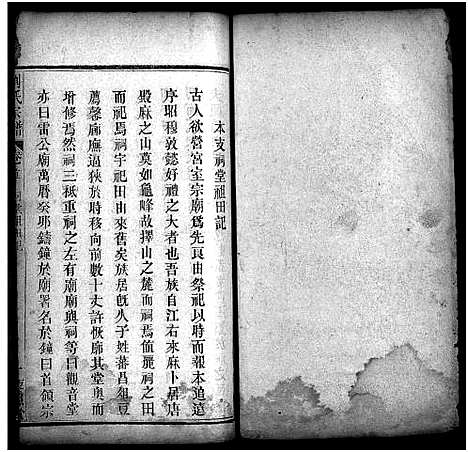 本支祠堂祖田記
古人欲營宮室宗廟爲先良由祭祀以時而報本追遠
序昭穆敦懿好禮之大者也吾族自江右來麻卜居唐
殿麻之山莫如龜峰故擇山之麓而祠焉備麗祠之田
而祀焉祠宇祀田由來舊矣族居旣久子姓蕃昌俎豆
薦馨廟廡逼狹於時移向前數十丈許恢廓其堂奧而
增修焉然祠三祗重祠之左有廟廟與祠等曰觀音堂
亦曰雷公廟萬曆癸耶鑄鐘於廟署名於鐘曰首領宗
氏宗譜